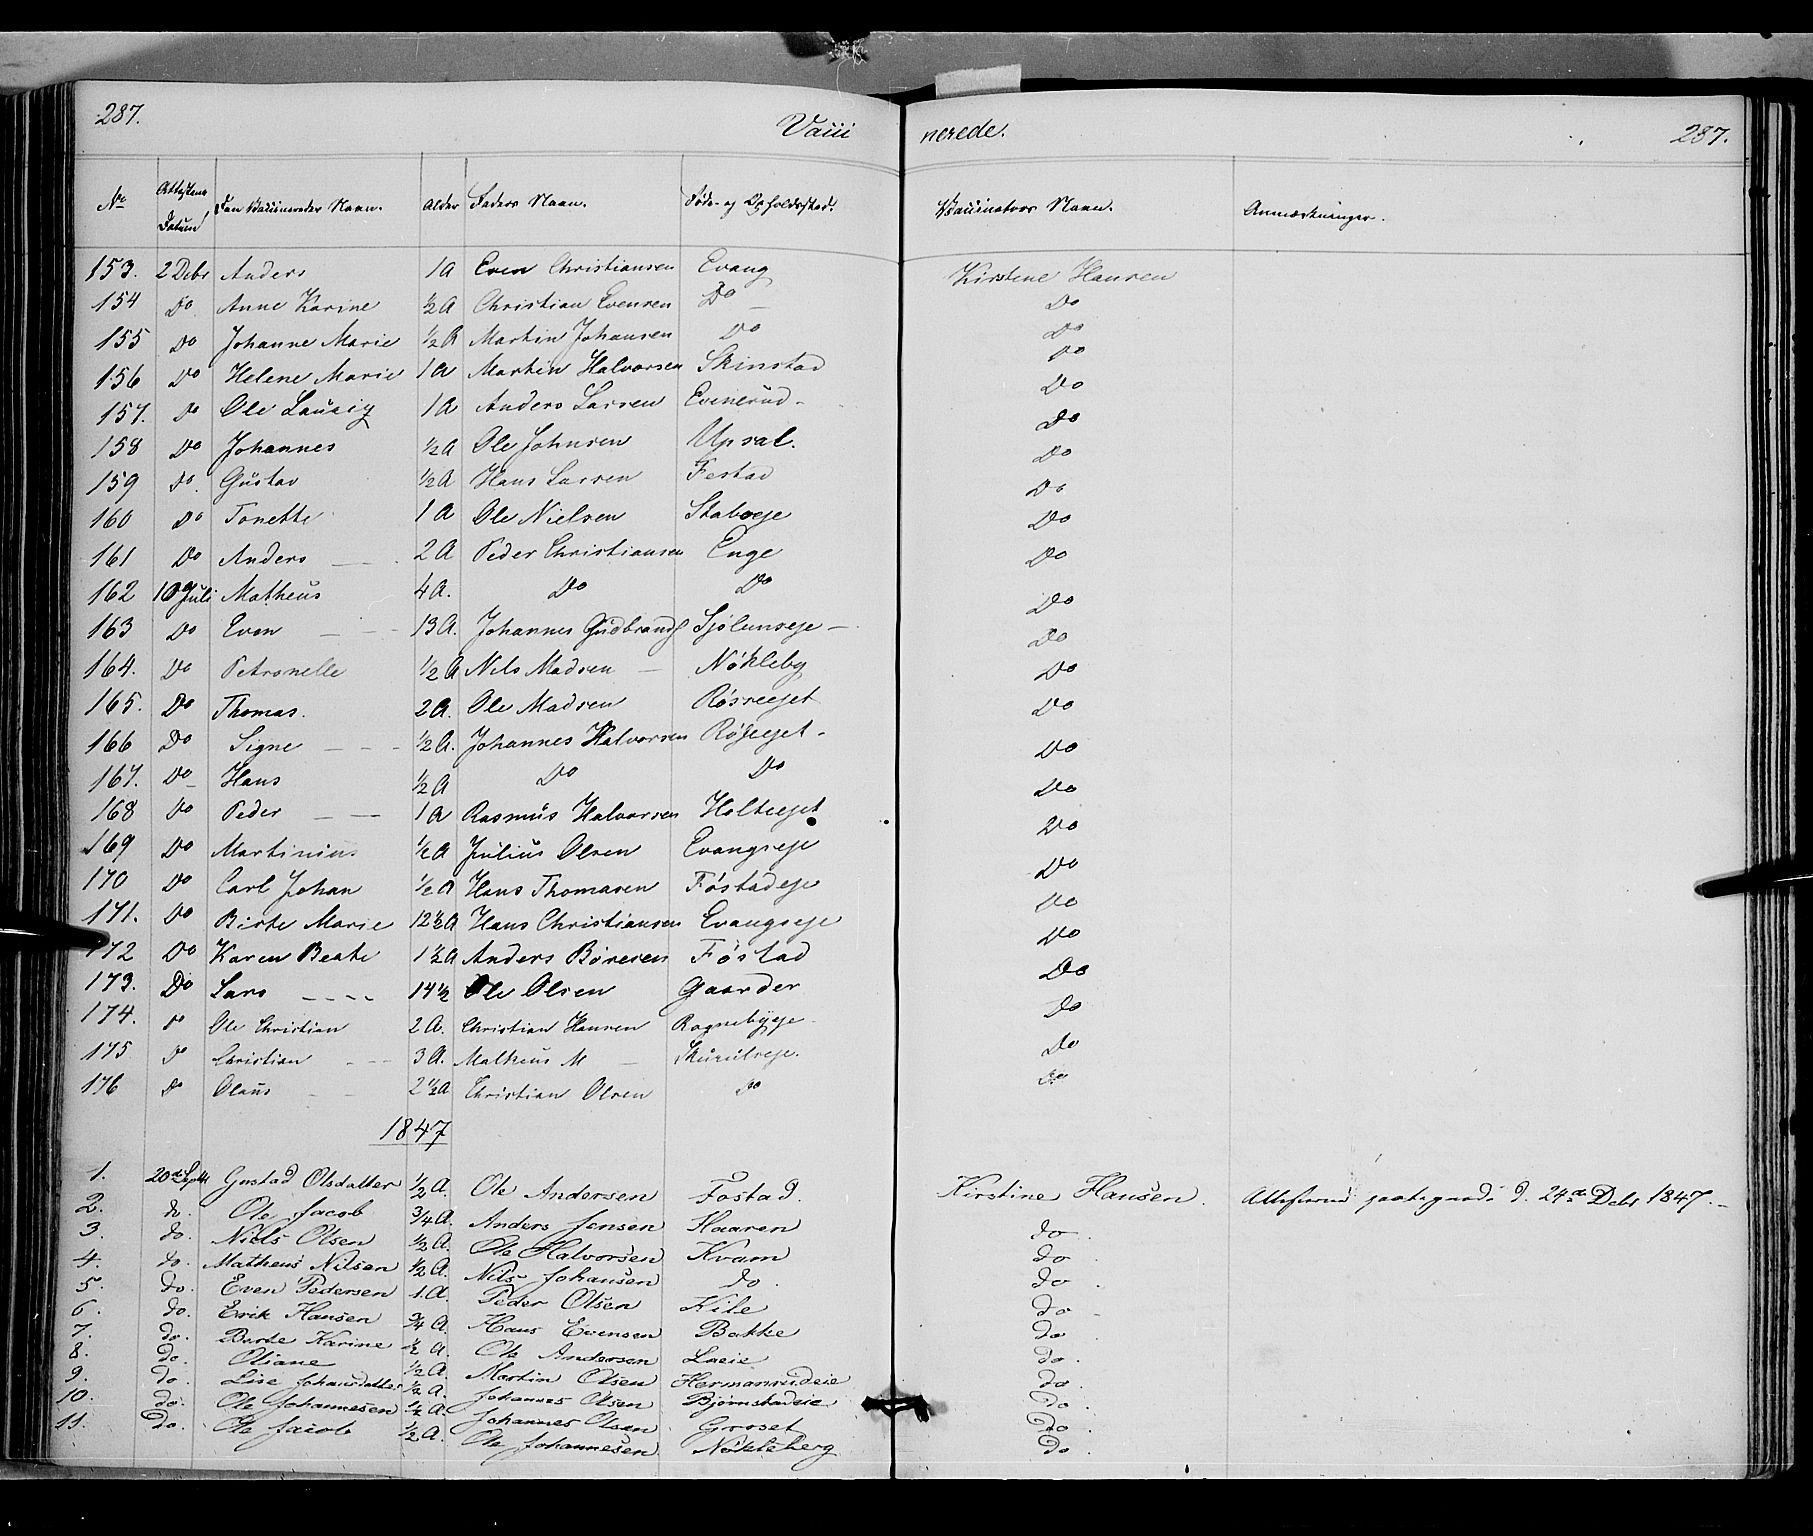 287. Vacci nerede. 287.
No Attestens Datum Den Vaccineredes Navn. Alder Faders Navn. Føde- og Opholdssted. Vaccinators Navn. Anmærkninger.
153. 2 Debr Anders 1 A Even Christiansen Evang Kirstene Hansen
154 Do Anne Karine ½ A Christian Evensen Do Do
155 Do Johanne Marie ½ A Martin Johansen Do Do
156 Do Helene Marie 1 A Martin Halvorsen Skinstad Do
157. Do Ole Lausig 1 A Anders Larsen Evenrud Do
158 Do Johannes ½ A Ole Johnsen Upsal. Do
159 Do. Gustav ½ A Hans Larsen Festad Do
160 Do Tonette 1 A Ole Nielsen Stabeeje Do
161 Do Anders 2 A Peder Christiansen Enge Do
162 10 Juli Matheus 4 A. Do Do Do
163 Do Even 13 A. Johannes Gudbrands Sjølunseje Do
164. Do Petronelle ½ A Nils Madsen Nøkleby Do
165. Do Thomas. 2 A. Ole Madsen Røsreejet Do
166 Do Signe ½ A. Johannes Halvorsen Røseejet Do
167. Do Hans ½ A Do Do Do
168 Do Peder 1 A Rasmus Halvorsen Holteejet Do
169 Do Martinius ½ A Julius Olsen Evangseje Do
170 Do Carl Johan ½ A Hans Thomasen Føstadeje Do
171. Do Birte Marie 12½ A Hans Christiansen Evangseje Do
172 Do Karen Beate 1½ A Anders Børesen Føstad Do
173. Do Lars 14½ Ole Olsen Gaarder Do
174. Do Ole Christian 2 A. Christian Hansen Rognebyeje Do
175 Do Christian 3 A. Matheus M Do
176 Do Olaus 2½ A Christian Olsen Do Do
1847
1. 20de Septb Gustad Olsdatter ½ A. Ole Andersen Fostad. Kirstine Hansen. d. 24de Debr 1847.
2. do. Ole Jacob ¾ A. Anders Jensen Haaren do.
3. do. Niels Olsen ½ A. Ole Halvorsen Kvam do.
4. do. Matheus Nilsen ½ A. Nils Johansen do. do.
5. do. Even Pedersen 1. A. Peder Olsen Kile do
6. do. Erik Hansen ¾ A. Hans Evensen Bakke do.
7. do. Berte Karine ½ A. Ole Andersen Laeie do.
8. do. Oliane ½ A. Martin Olsen Hermanrudeie do.
9. do. Lise Johansdatter ½ A. Johannes Olsen Bjørnstadeie do.
10. do. Ole Johannesen ½ A. Johannes Olsen Groset do.
11. do. Ole Jacob ½ A. Ole Johannesen Nøkleberg do.